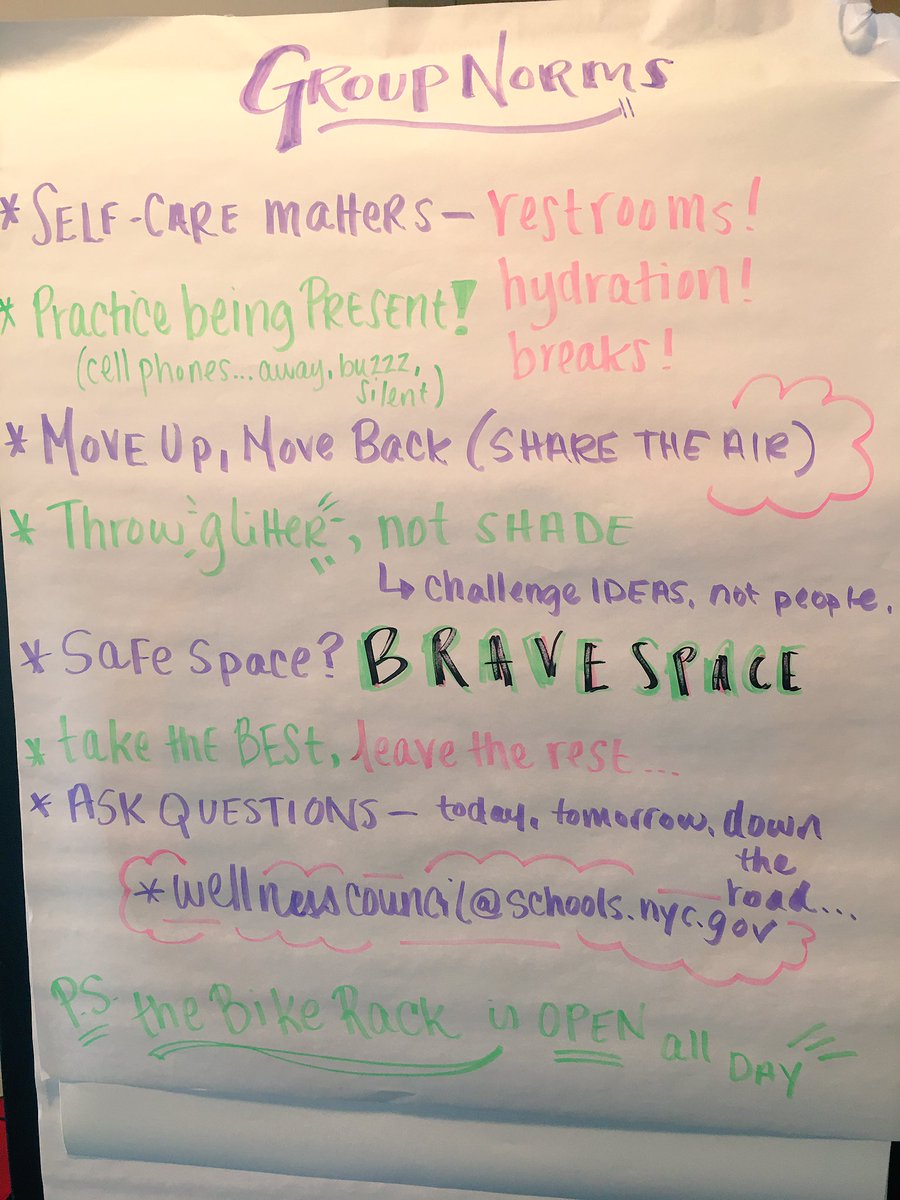 GROUP NORMS
* SELF-CARE matters - restrooms!
hydration!
breaks!
* Practice being PRESENT!
(cell phones... away, buzzz,
silent)
* MOVE UP, MOVE BACK (SHARE THE AIR)
* Throw glitter, not SHADE
↳ challenge IDEAS, not people.
* Safe Space? BRAVE SPACE
* take the BEST, leave the rest...
* ASK QUESTIONS - today, tomorrow, down
the
road...
* wellnesscouncil@schools.nyc.gov
P.S. the Bike Rack is OPEN all DAY